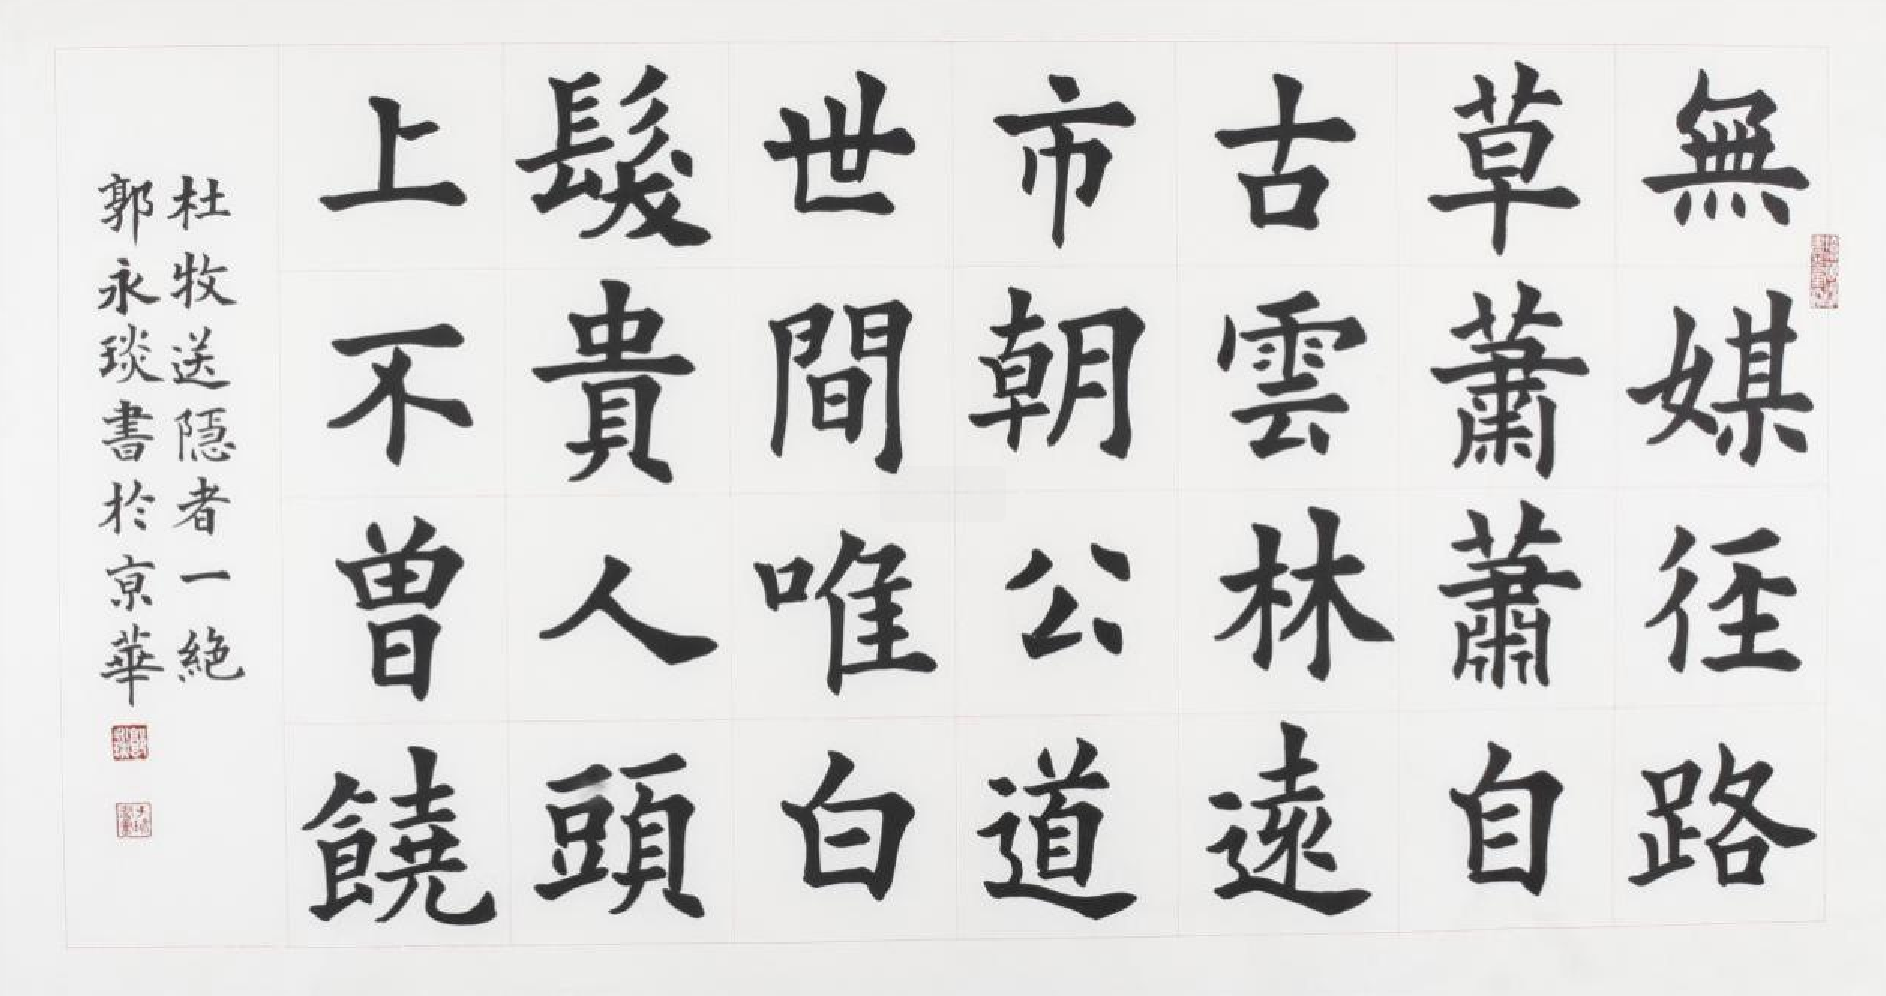 無媒徑路
草蕭蕭自
古雲林遠
市朝公道
世間唯白
髮貴人頭
上不曾饒
杜牧送隱者一絕
郭永琰書於京華